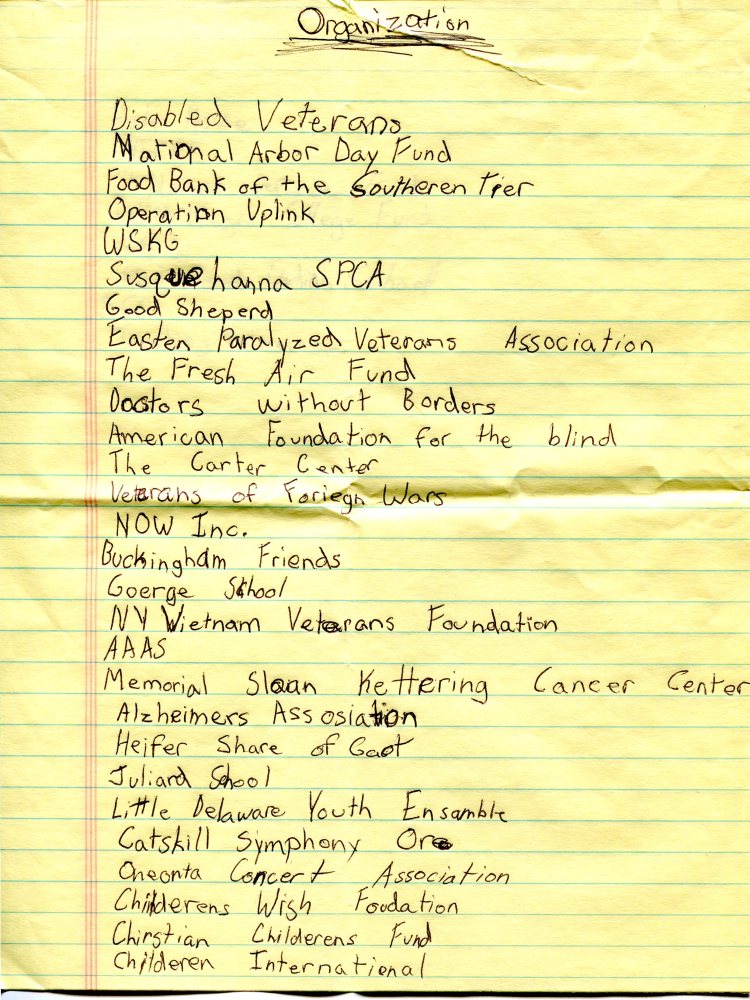 Organization
Disabled Veterans
National Arbor Day Fund
Food Bank of the Southeren Tier
Operation Uplink
WSKG
Susquehanna SPCA
Good Sheperd
Easten Paralyzed Veterans Association
The Fresh Air Fund
Doctors without Borders
American Foundation for the blind
The Carter Center
Veterans of Foriegn Wars
NOW Inc.
Buckingham Friends
Goerge School
NY Vietnam Veterans Foundation
AAAS
Memorial Sloan Kettering Cancer Center
Alzheimers Assosiation
Heifer Share of Gaot
Juliard School
Little Delaware Youth Ensamble
Catskill Symphony Orc
Oneonta Concert Association
Childerens Wish Foudation
Chirstian Childerens Fund
Childeren International